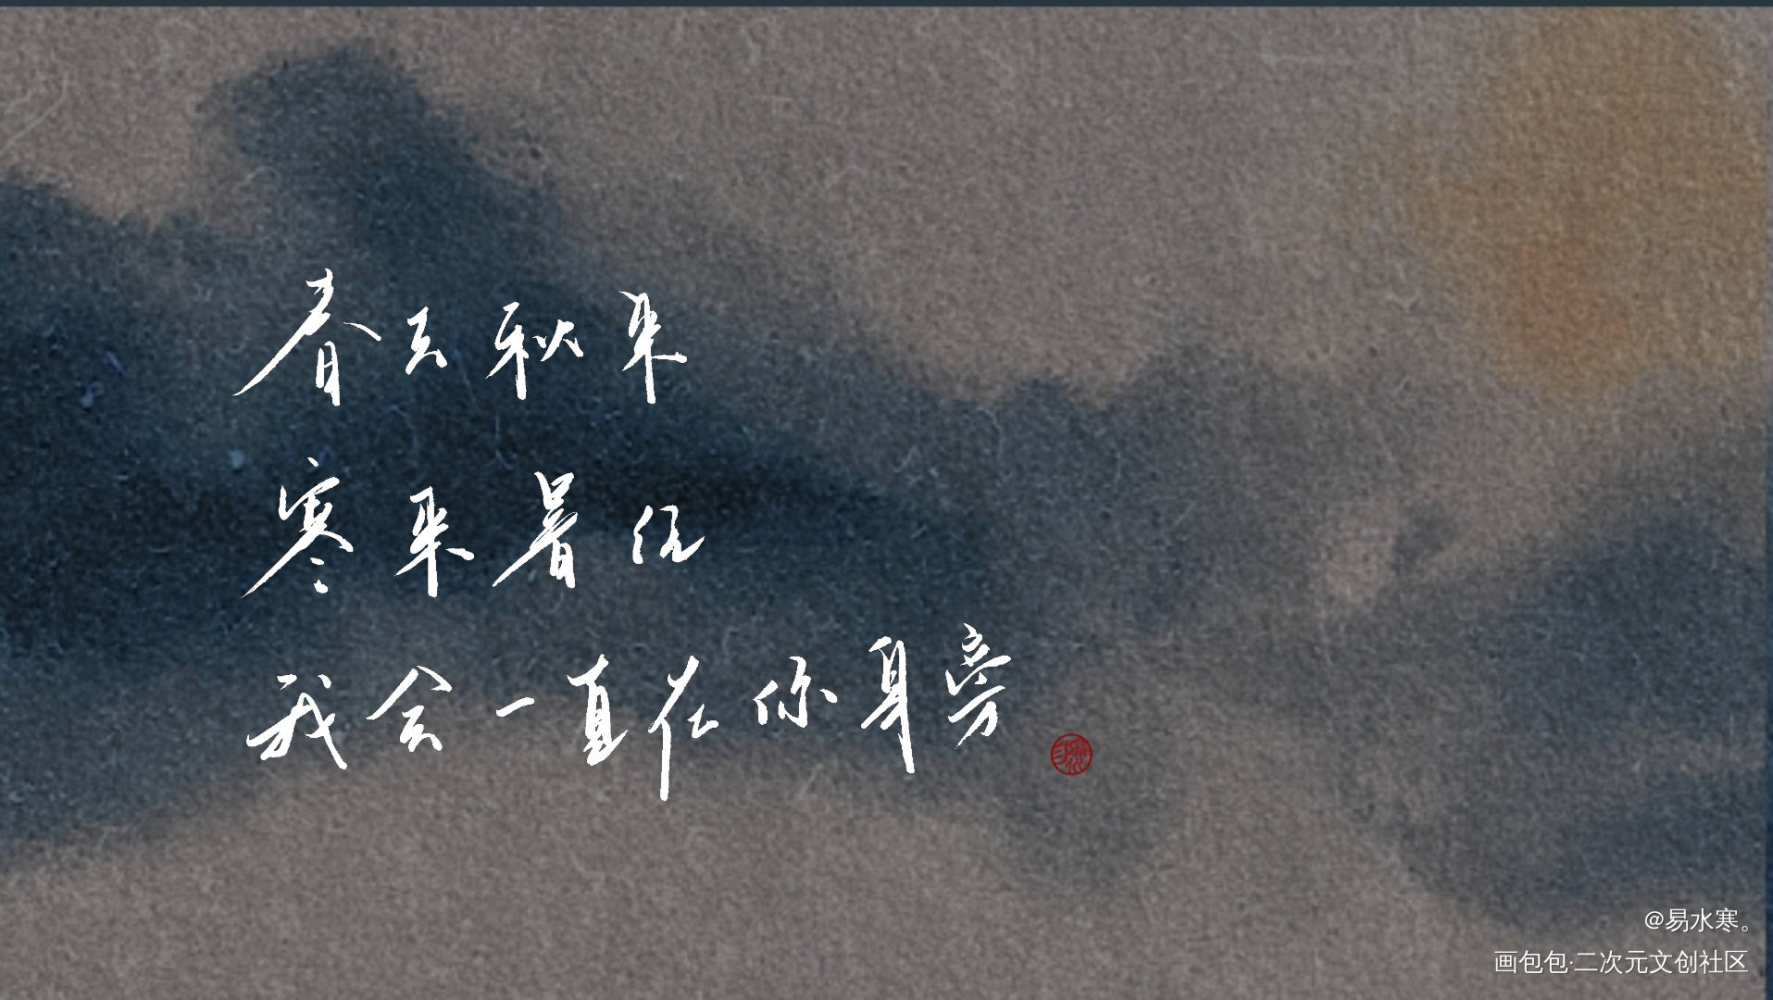 春去秋来
寒来暑往
我会一直在你身旁
@易水寒。
画包包·二次元文创社区